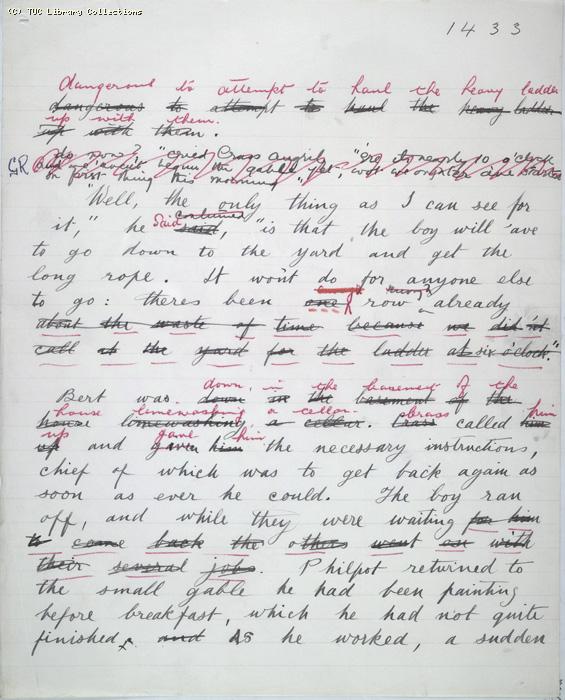 (C) TUC Library Collections
1433
dangerous to attempt to haul the heavy ladder
dangerous to attempt to haul the heavy ladder
up with them.
up with them.
GR do now?" cried Crass angrily. "It's nearly 10 o'clock
and we 'aven't begun the gable yet,
on first thing this morning
"Well, the only thing as I can see for
continued
it," he Said said, "is that the boy will 'ave
to go down to the yard and get the
long rope. It won't do for anyone else
to go: theres been one row already
about the waste of time because we did'nt
call at the yard for the ladder at six o'clock."
down in the basement of the
Bert was down in the basement of the
house limewashing a cellar. Crass him
house limewashing a cellar. Crass called him
up gave him
up and gave him the necessary instructions,
chief of which was to get back again as
soon as ever he could. The boy ran
off, and while they were waiting for him
to come back the others went on with
their several jobs. Philpot returned to
the small gable he had been painting
before breakfast, which he had not quite
finished, and As he worked, a sudden